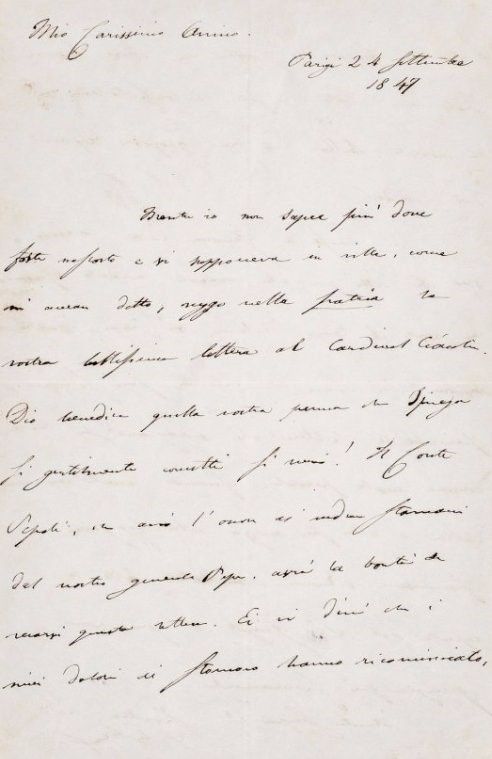 Mio Carissimo Amico.
Parigi 24 Settembre
1847
Mentre io non sapea più dove
foste nascosto e vi supponeva in villa, come
mi avean detto, veggo nella patria la
vostra bellissima lettera al Cardinal Ciacchi.
Dio benedica quella vostra penna che spiega
sì gentilmente concetti sì veri! Il Conte
Pepoli, che avrò l'onor di veder stamani
dal nostro generale Pepe, avrà la bontà di
recarvi questa lettera. Ei vi dirà che i
miei dolori di stomaco hanno ricominciato,